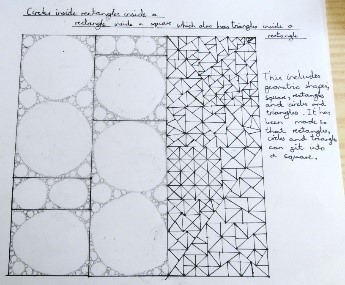 Circles inside rectangles inside a
rectangle inside a square which also has triangles inside a
rectangle
This includes
geometric shapes,
square, rectangles
and circles and
triangles. It has
been made so
that rectangles,
circles and triangles
can fit into
a square.